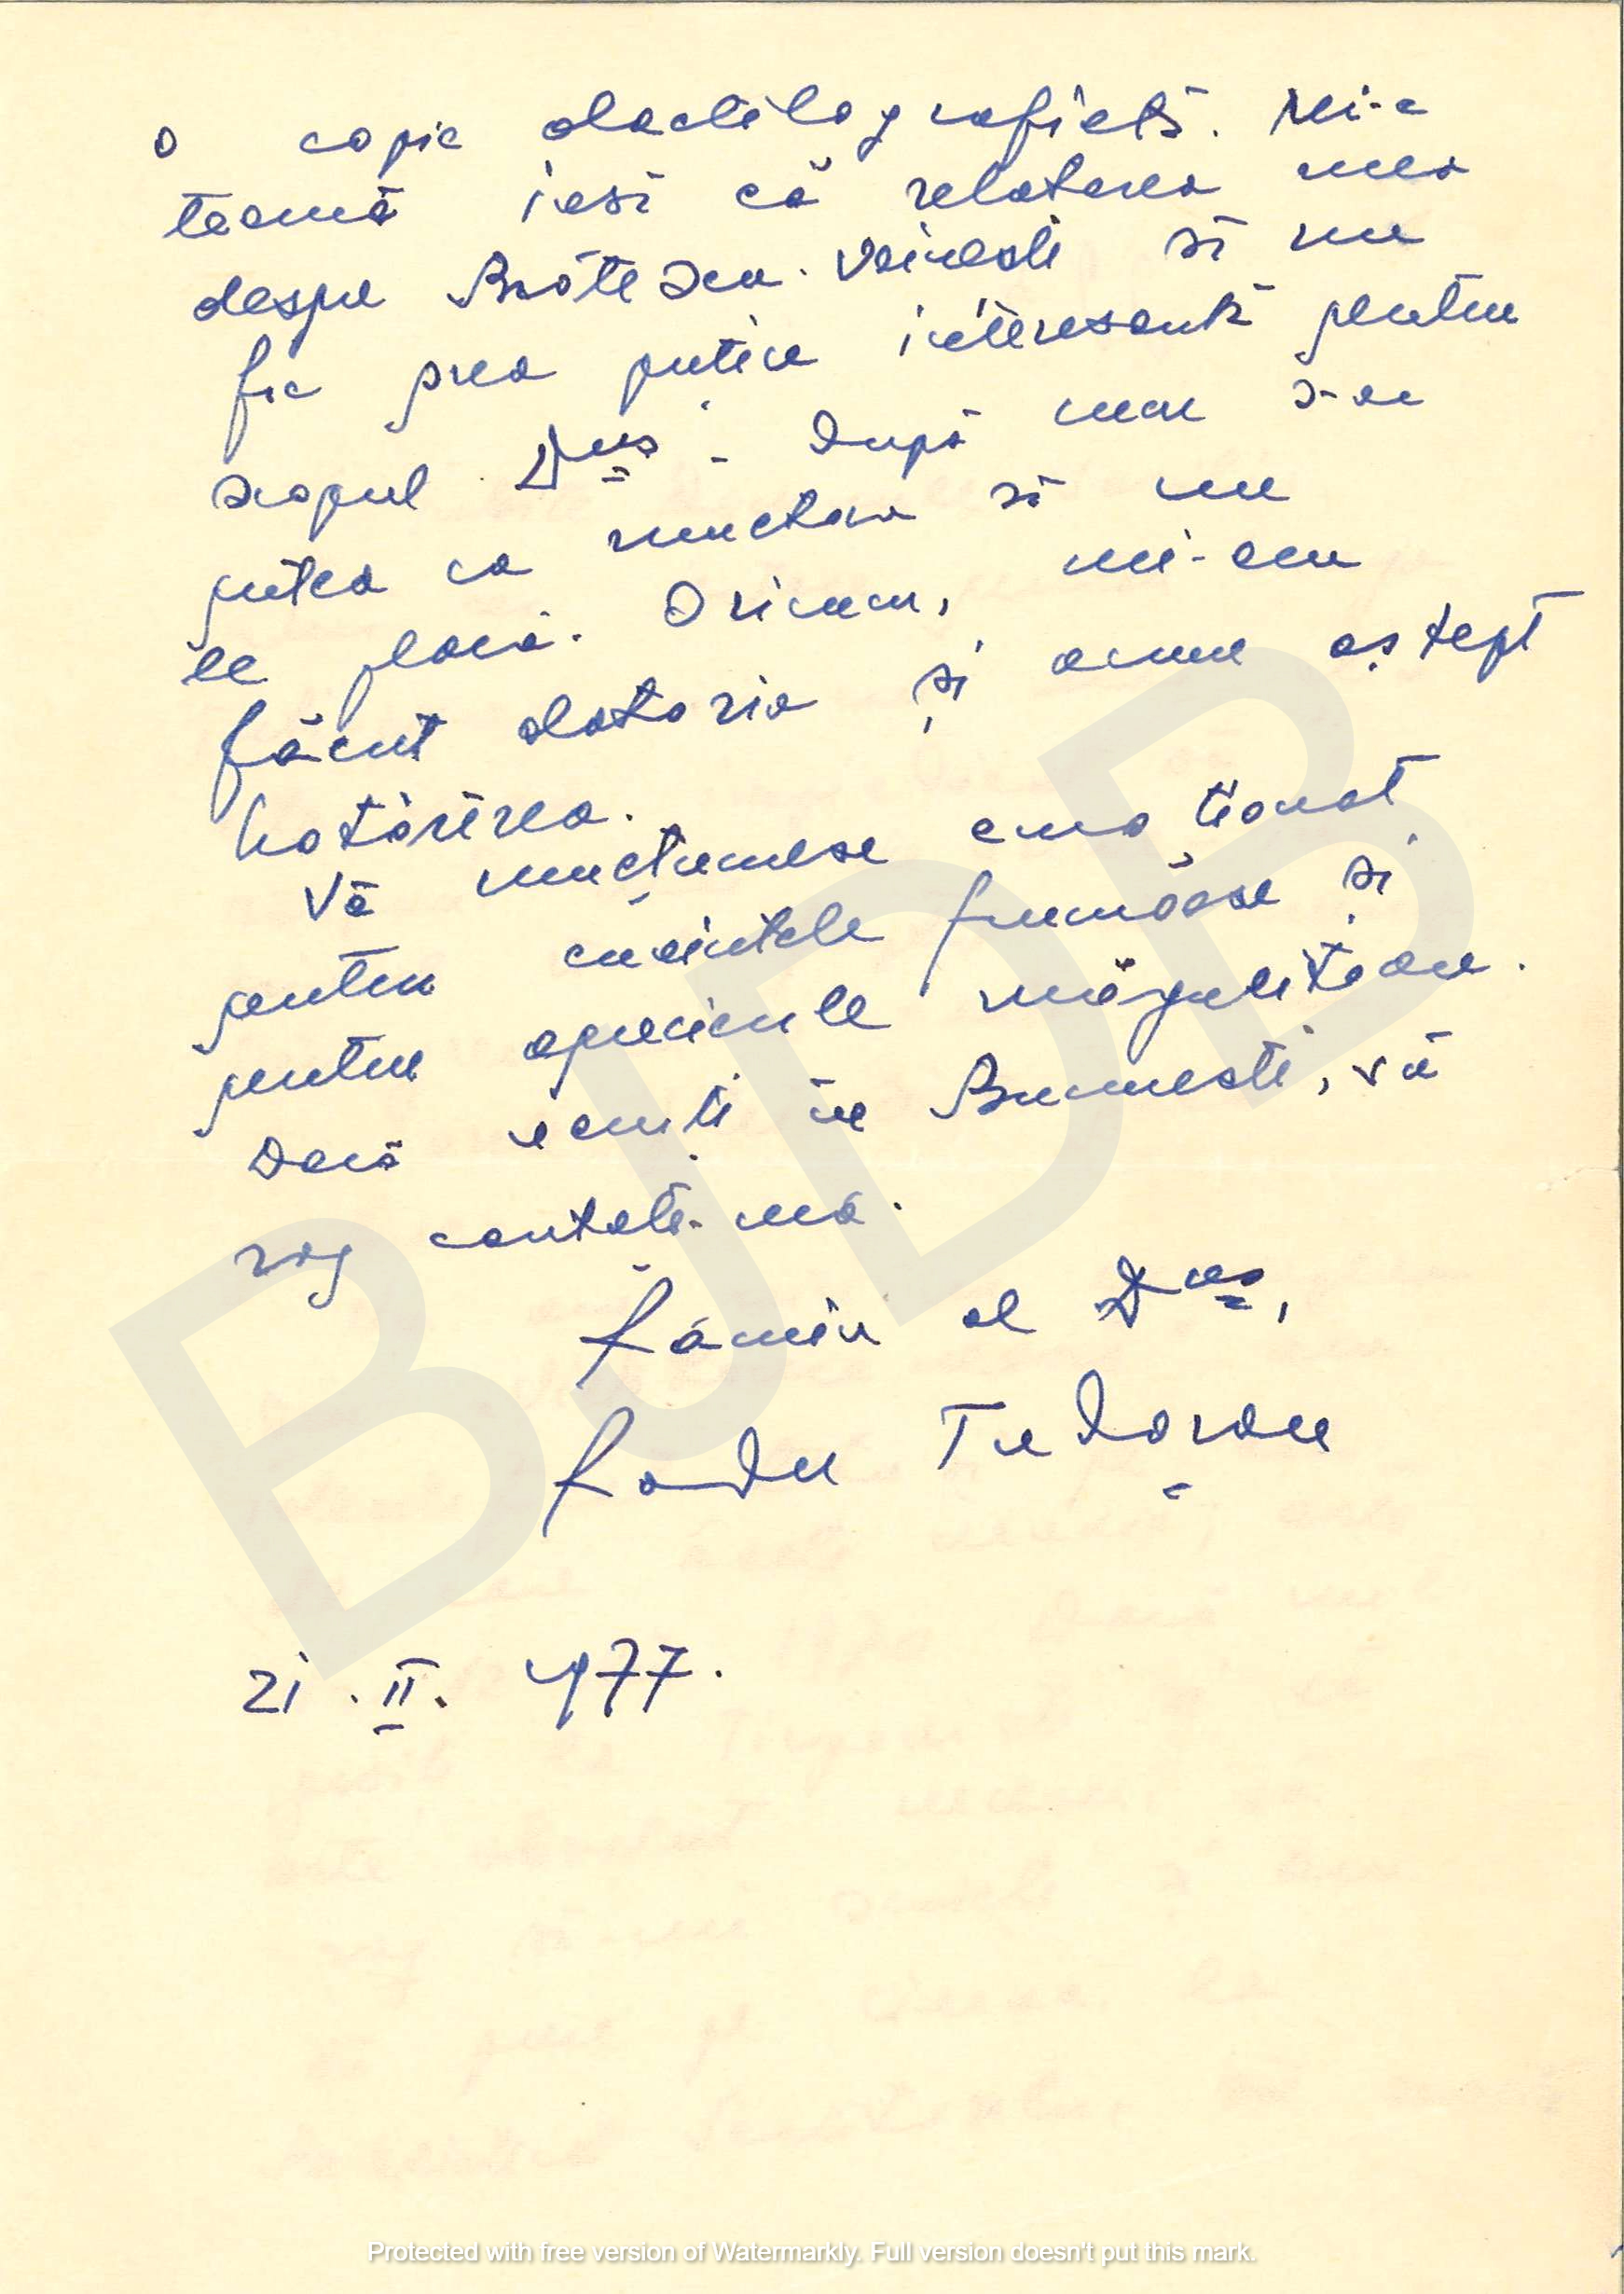 o copie dactilografiată. Mi-e
teamă iasi că relatarea mea
despre Brătescu-Voinești să nu
fie prea puțin interesantă pentru
scopul Dvs. După cum s-ar
putea ca nuvela să nu
le placă. Oricum, mi-am
făcut datoria și acum aștept
hotărîrea.
Vă mulțumesc emoționat
pentru cuvintele frumoase și
pentru aprecierile măgulitoare.
Dacă veniți în București, vă
rog căutați-mă.
Rămîn al Dvs,
Radu Tudoran
21.II.977.
BJDB
Protected with free version of Watermarkly. Full version doesn't put this mark.